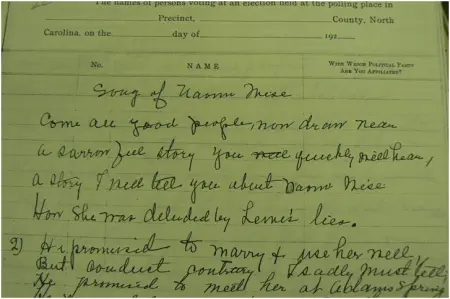 The names of persons voting at an election held at the polling place in
Precinct, County, North
Carolina, on the day of 192
No. NAME WITH WHICH POLITICAL PARTY
ARE YOU AFFILIATED?
Song of Naomi Wise
Come all good people, now draw near
a sarrow full story you will quickly will hear,
a story I will tell you about Naomi Wise
How She was deluded by Lewis lies.
2) He promised to marry & use her well,
But conduct contrary I sadly must tell;
He promised to meet her at adams Spring